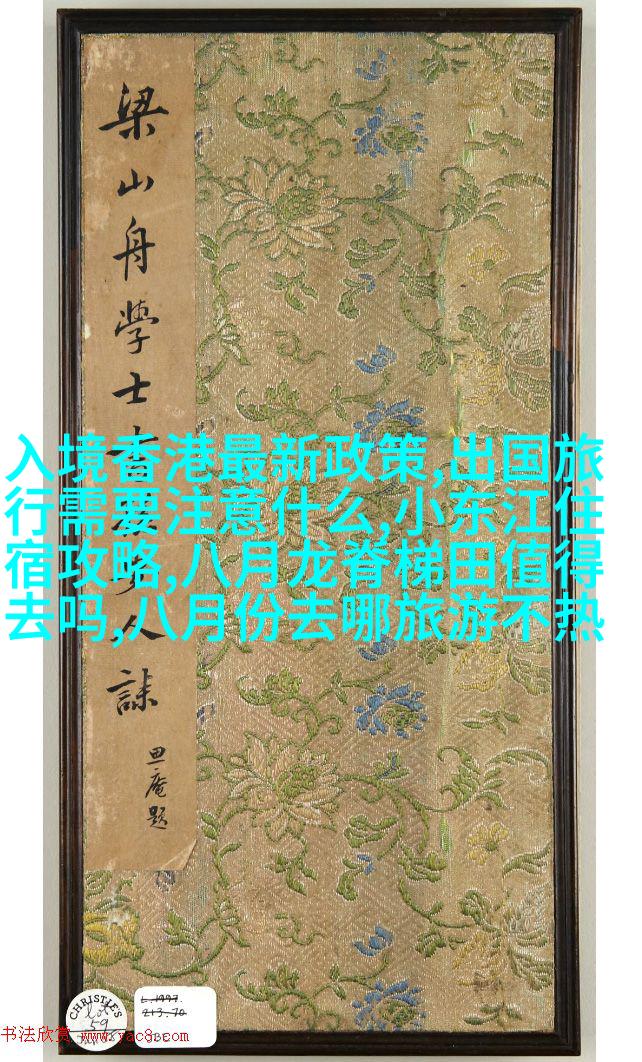 梁山舟學士
人誄
思庵題
入境香港最新政策,出国旅
行需要注意什么,小东江住
宿攻略,八月龙脊梯田值得
去吗,八月份去哪旅游不热
CHRISTIE'S
Lot
59
L.1997.
213.70
书法欣赏 www.yac8.com